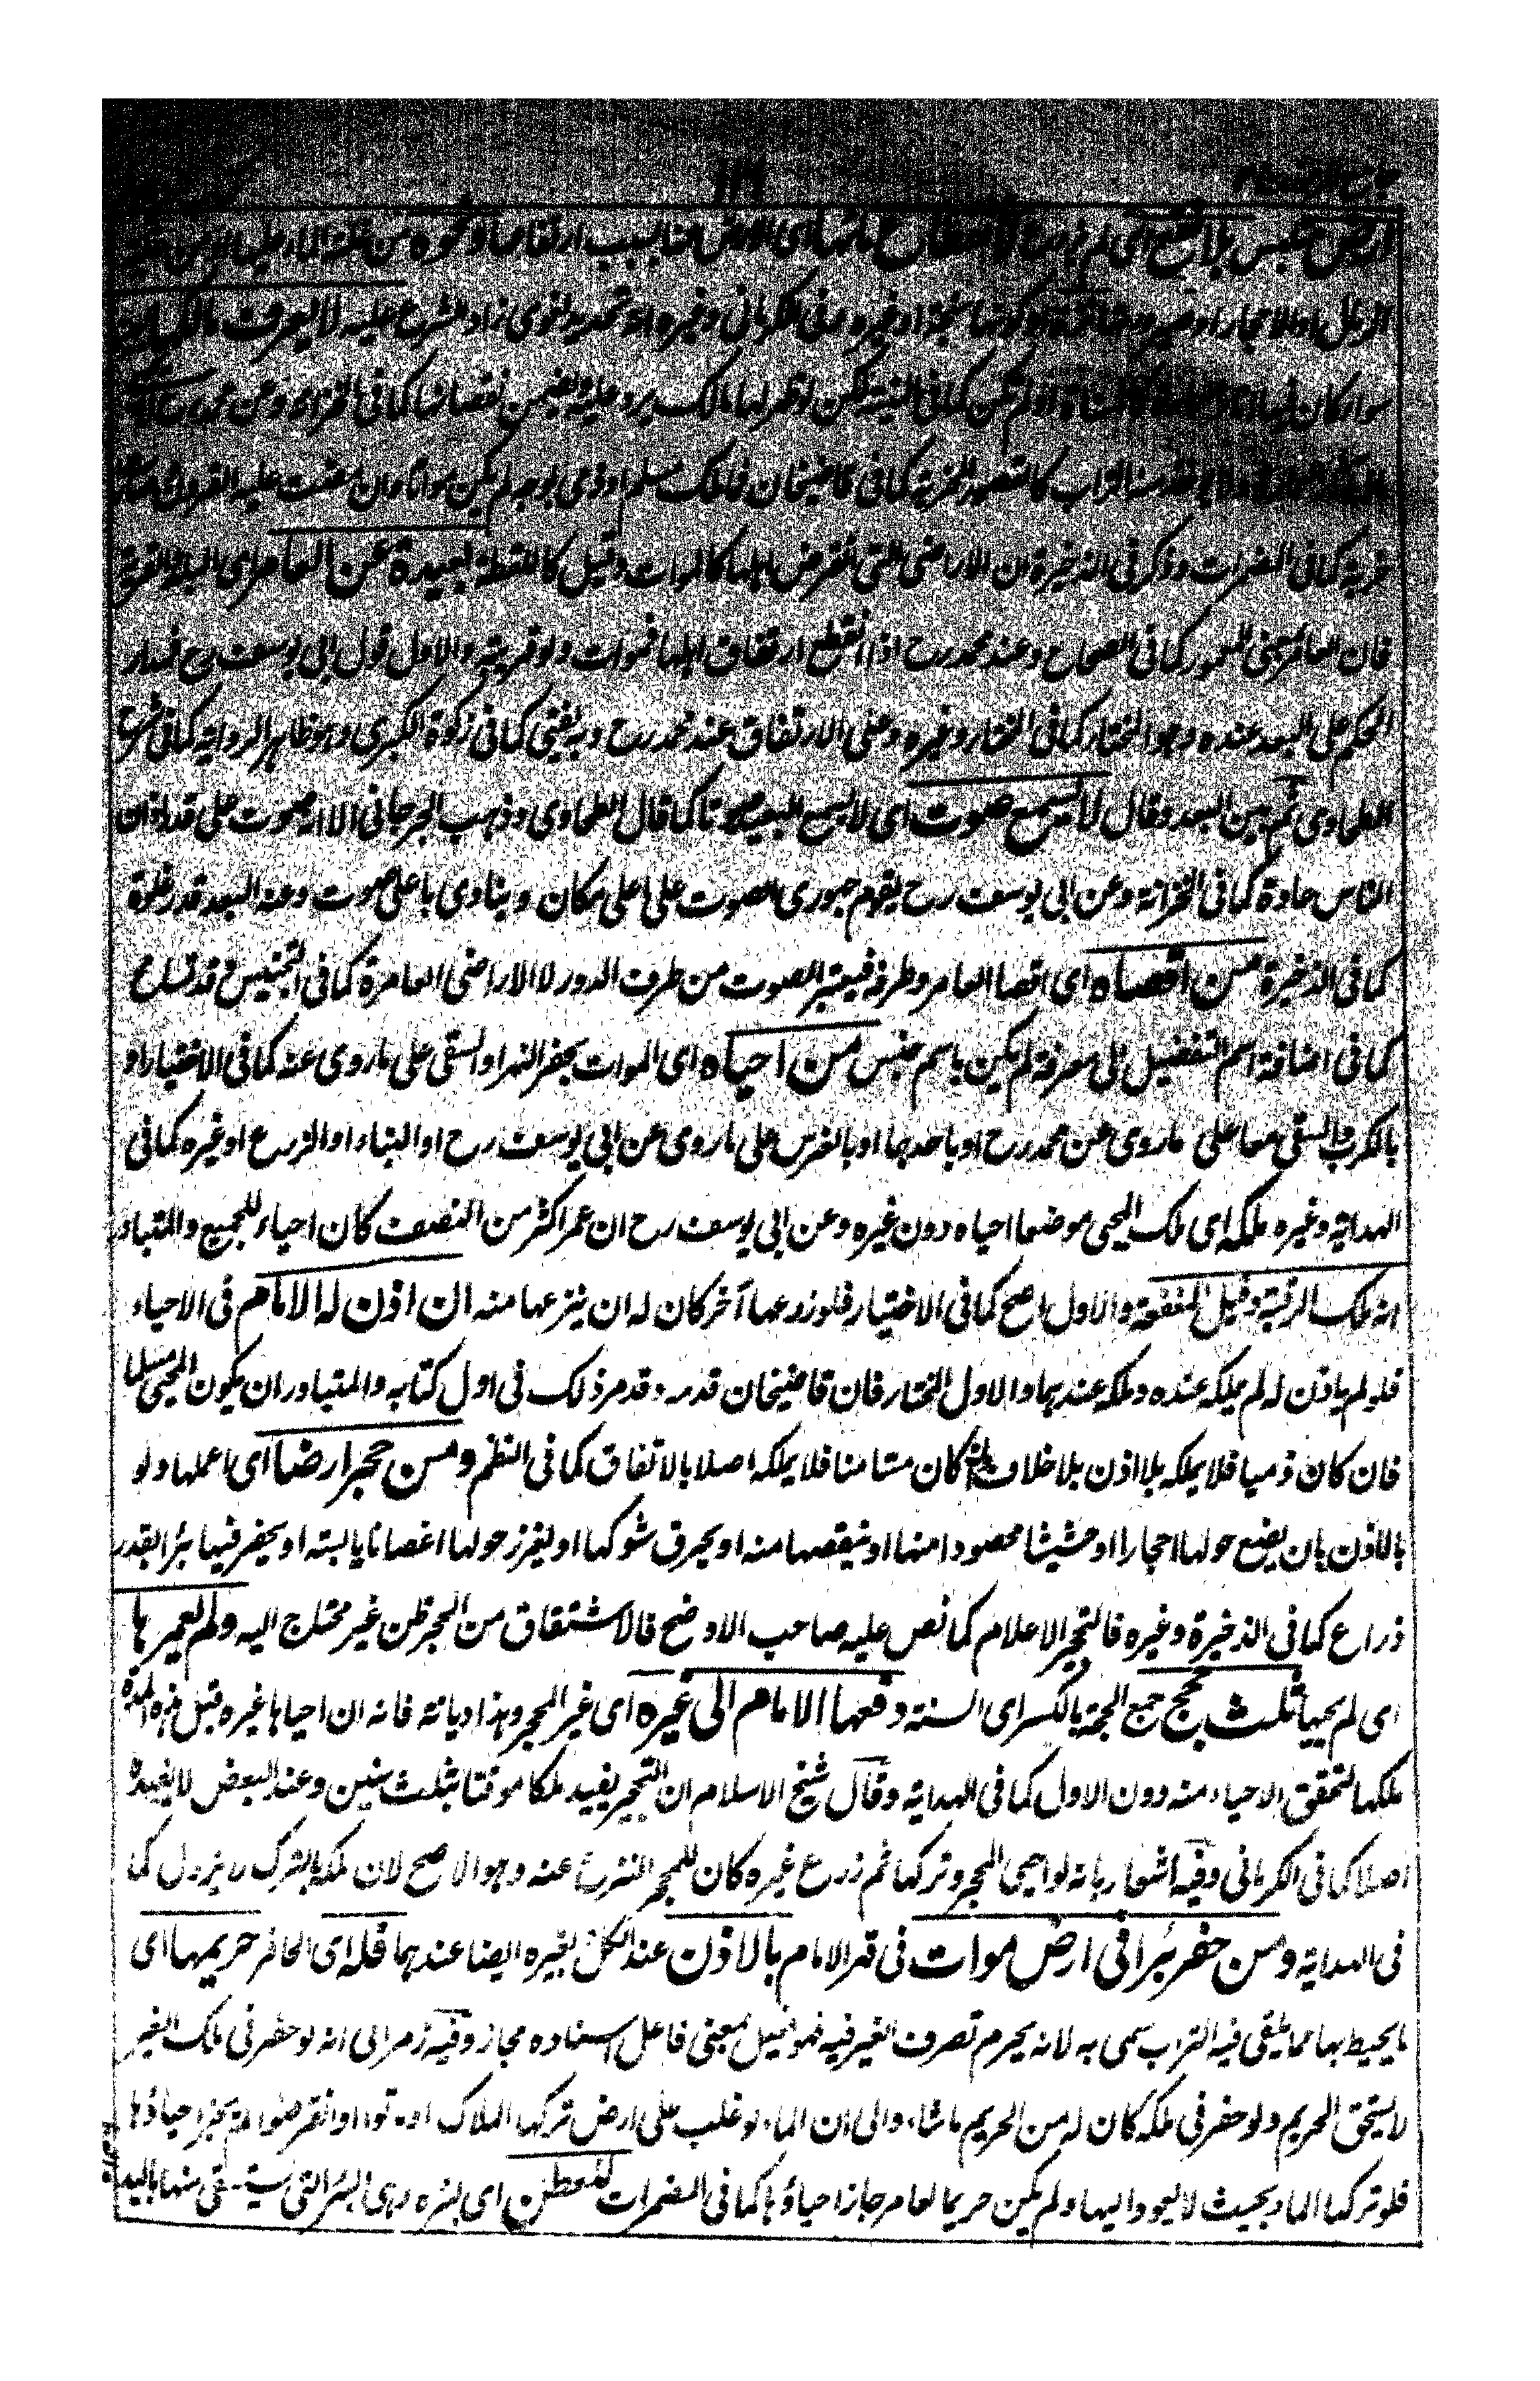 جامع الرموز
ارض جنس بلا نفع اى لم لانقطاع مائها اى الارض بسبب ارتفاعها ونحوه من قلة الماء
الرمل او الاحجار او وفى الكرمانى وغيره انه تحديد لغوى زاد الشرع عليه لا يعرف مالكها
سواء كان فيها او لم يكن كما فى لكن لو ظهر لها مالك يرد عليه ويضمن نقصانها كما فى الخزانة وعن محمد رح
منه التراب كالقصور الخربة كما فى قاضيخان فالملك مسلم او ذمى لم يكن مواتا وان مضت عليه القرون
خربة كما فى المضمرات وذكر فى الذخيرة ان الاراضى التى انقرض اهلها كالموات وقيل كاللقطة بعيدة عن العامر اى البلد والقرية
فان العامر بمعنى المعمور كما فى الصحاح وعند محمد رح اذا انقطع ارتفاق اهلها فموات ولو قريبة والاول قول ابى يوسف رح فمدار
الحكم على البعد عنده وهو المختار كما فى المختار وغيره وعلى الارتفاق عند محمد رح وبه يفتى كما فى زكوة الكبرى وهو ظاهر الرواية كما فى شرح
الطحاوى ثم بين البعد وقال لا يسمع صوت اى لا يسمع البعيد صوتا كما قال الطحاوى وذهب الجرجانى الا انه صوت على قدر اذان
الناس عادة كما فى الخزانة وعن ابى يوسف رح يقوم جهورى الصوت على اعلى مكان وينادى باعلى صوت وعنه البعد قدر غلوة
كما فى الذخيرة من اقصاه اى اقصا العامر وطرفه فيعتبر الصوت من طرف الدور لا الاراضى العامرة كما فى التجنيس وقد تسامح
كما فى اضافة اسم التفضيل الى معرفة لم يكن باسم جنس من احياه اى الموات بحفر النهر او السقى على ما روى عنه كما فى الاختيار او
بالكرب والسقى معا على ما روى عن محمد رح او باحدهما او بالغرس على ما روى عن ابى يوسف رح او البناء او الزرع او غيره كما فى
الهداية وغيره ملكه اى ملك المحيى موضعا احياه دون غيره وعن ابى يوسف رح ان عمر اكثر من النصف كان احياء للجميع والمتبادر
انه ملك الرقبة وقيل المنفعة والاول اصح كما فى الاختيار فلو زرعها آخر كان له ان ينزعها منه ان اذن له الامام فى الاحياء
فلو لم ياذن له لم يملكه عنده وملكه عندهما والاول المختار فان قاضيخان قدمه وقد مر ذلك فى اول كتابه والمتبادر ان يكون المحيى مسلما
فان كان ذميا فلا يملكه بلا اذن بلا خلاف وان كان مستامنا فلا يملكه اصلا بالاتفاق كما فى النظم ومن حجر ارضا اى اعلمها ولو
بالاذن بان يضع حولها احجارا او حشيشا محصودا منها او ينقصها منه او يحرق شوكها او يغرز حولها اغصانا يابسته او يحفر فيها بئرا بقدر
ذراع كما فى الذخيرة وغيره فالتحجير الاعلام كما نص عليه صاحب الاوضح فالاشتقاق من الحجر ظن غير محتاج اليه ولم يعمرها
اى لم يحييها ثلث حجج جمع الحجة بالكسر اى السنة دفعها الامام الى غيره اى غير المحجر وهذا ديانة فانه ان احياها غيره قبل هذه المدة
ملكها لتحقق الاحياء منه دون الاول كما فى الهداية وقال شيخ الاسلام ان التحجير يفيد ملكا موقتا بثلث سنين وعند البعض لا يفيده
اصلا كما فى الكرمانى وفيه اشعار بانه لو احيى المحجر وتركها ثم زرع غيره كان للمحجر النزع عنه وهو الاصح لان ملكه بالترك لا يزول كما
فى الهداية ومن حفر بئرا فى ارض موات فى قهر الامام بالاذن عند الكل بغيره ايضا عندهما فله اى الحافر حريمها اى
ما يحيط بها مما يلقى فيه التراب سمى به لانه يحرم تصرف الغير فيه فهو فعيل بمعنى فاعل اسناده مجاز وفيه رمز الى انه لو حفر فى ملك الغير
لا يستحق الحريم ولو حفر فى ملكه كان له من الحريم ما شاء والى ان الماء لو غلب على ارض تركها الملاك او ماتوا او انقرضوا لم يجز احياؤها
فلو تركها الماء بحيث لا يعود اليها ولم يكن حريما لعامر جاز احياؤها كما فى المضمرات للعطن اى لبئره وهى البئر التى يستقى منها باليد